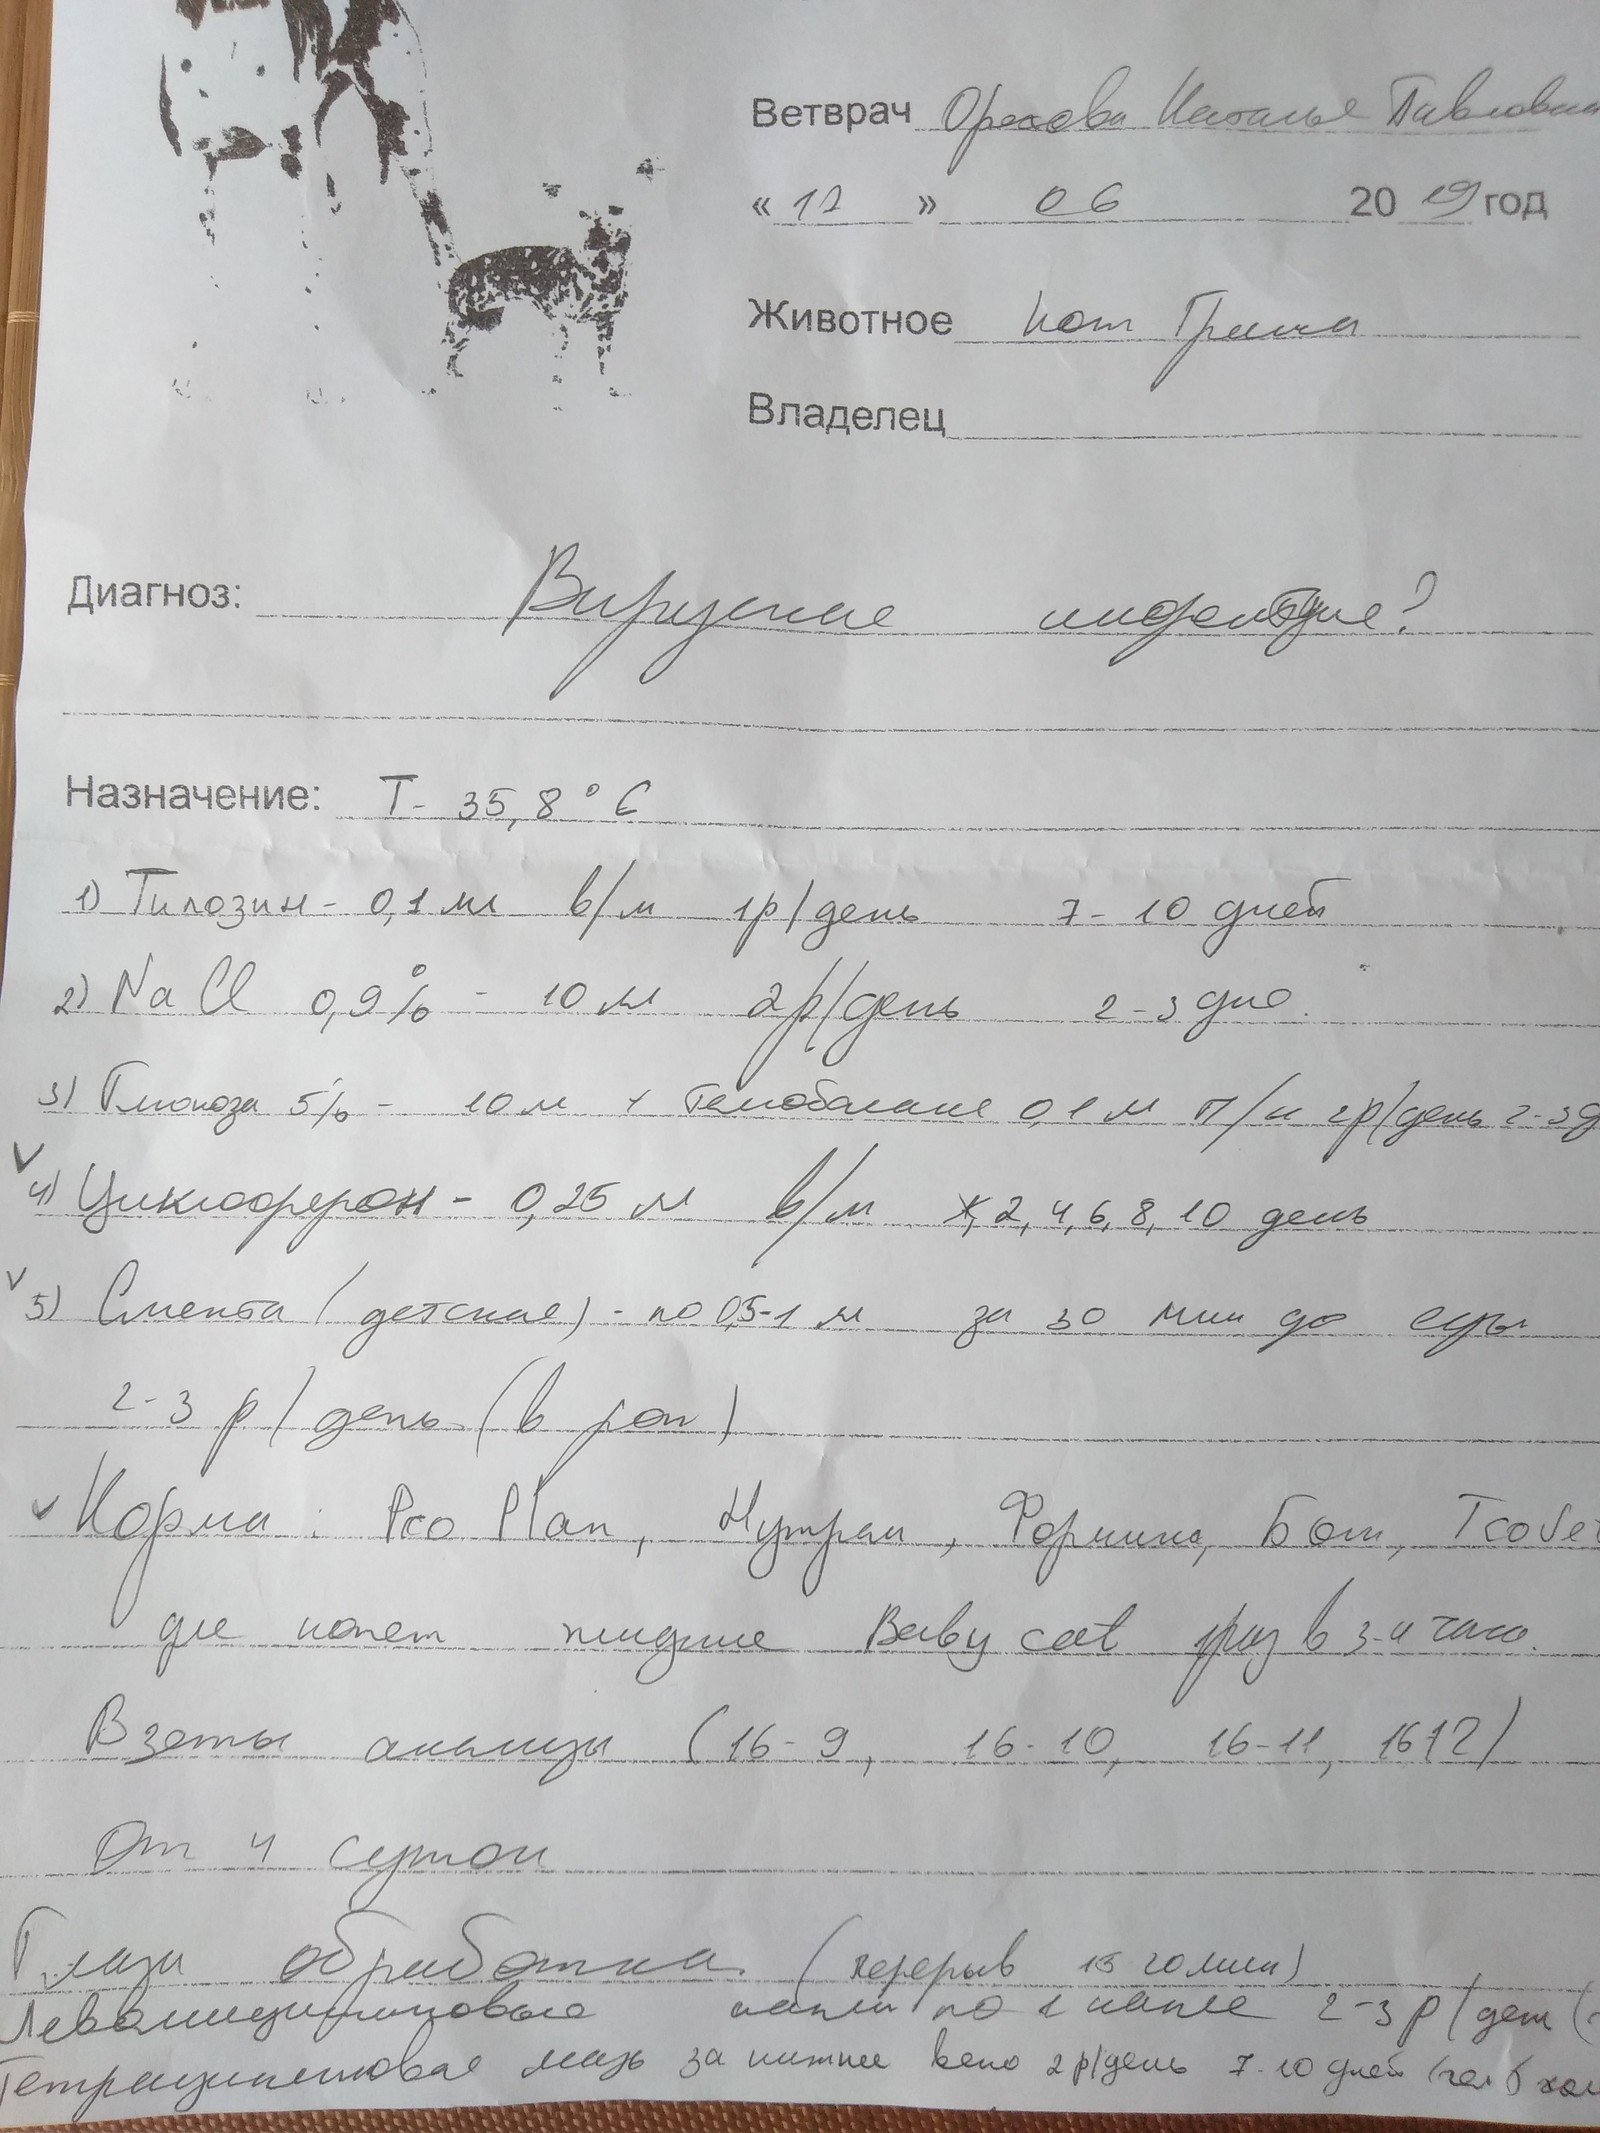 Ветврач Орехова Наталья Павловна
« 12 » 06 20 19 год
Животное кот Гриша
Владелец
Диагноз: Вирусная инфекция?
Назначение: Т- 35,8° С
1) Тилозин - 0,1 мл в/м 1р/день 7-10 дней
2) NaCl 0,9% - 10 мл 2р/день 2-3 дня.
3) Глюкоза 5% - 10 мл + Гемобаланс 0,1 мл п/к 2р/день 2-3д
4) Циклоферон - 0,25 мл в/м 2, 4, 6, 8, 10 день
5) Смекта (детская) - по 0,5-1 мл за 30 мин до еды
2-3 р/день (в рот)
Корма: Pro Plan, Нутрам, Формина, Бош, Trovet
для котят жидкие Baby cat 1раз в 3-4 часа.
Взяты анализы (16-9, 16-10, 16-11, 1612)
От 4 суток
Глаза обработка (перерыв 15 20 мин)
Левомицитиновые капли по 1 капле 2-3 р/ден
Тетрациклиновая мазь за нижнее веко 2р/день 7-10 дней